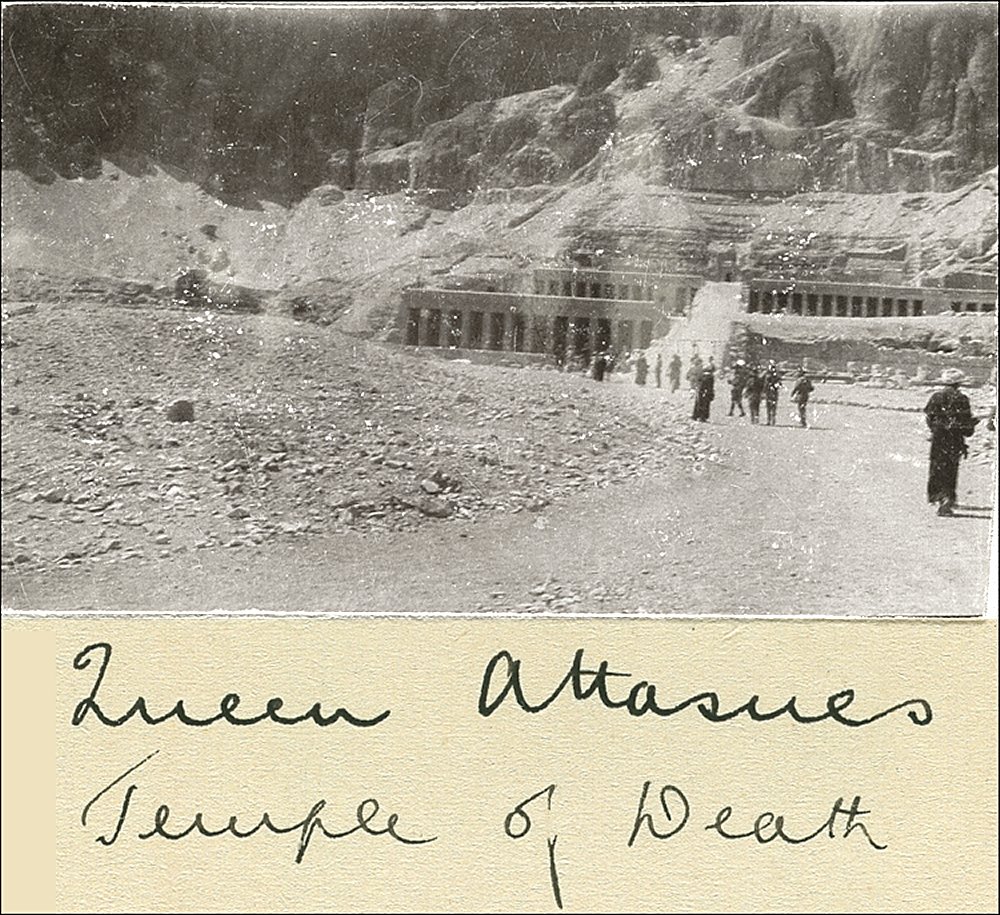 Queen Attasues
Temple of Death